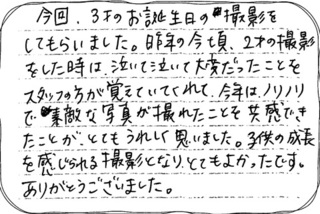 今回、3才のお誕生日の撮影を
してもらいました。昨年の今頃、2才の撮影
をした時は、泣いて泣いて大変だったことを
スタッフの方が覚えていてくれて、今年は、ノリノリ
で素敵な写真が撮れたことを共感でき
たことが、とてもうれしく思いました。子供の成長
を感じられる撮影となり、とてもよかったです。
ありがとうございました。